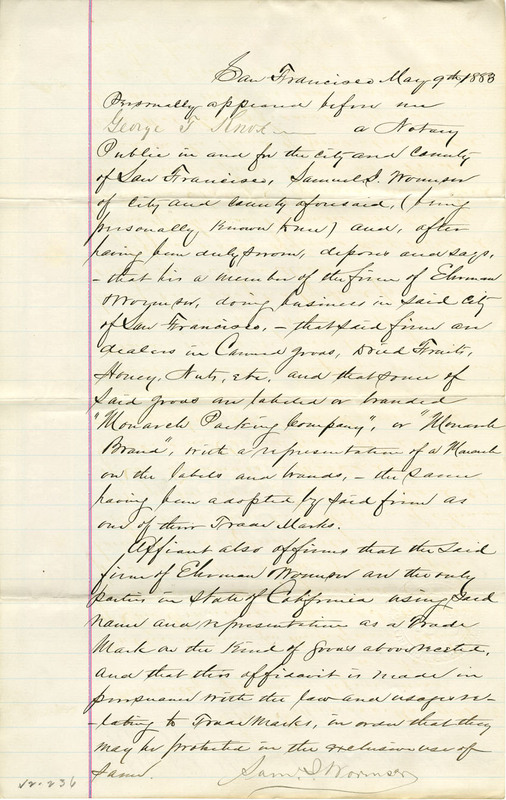 San Francisco May 9th 1883
Personally appeared before me
George T. Knox a Notary
Public in and for the city and county
of San Francisco, Samuel I. Wormser
of city and county aforesaid, (being
personally known to me) and, after
having been duly sworn, deposes and says,
- that he is a member of the firm of Ehrman
& Wormser, doing business in said city
of San Francisco, - that said firm are
dealers in Canned goods, Dried Fruits,
Honey, Nuts, etc. and that some of
said goods are labeled or branded
"Monarch Packing Company", or "Monarch
Brand", with a representation of a Monarch
on the labels and brands, - the same
having been adopted by said firm as
one of their Trade Marks.
Affiant also affirms that the said
firm of Ehrman Wormser are the only
parties in State of California using said
name and representation as a Trade
Mark on the kind of goods above recited,
and that this affidavit is made in
pursuance with the law and usages re-
-lating to Trade Marks, in order that they
may be protected in the exclusive use of
same. Saml I Wormser
v2-236